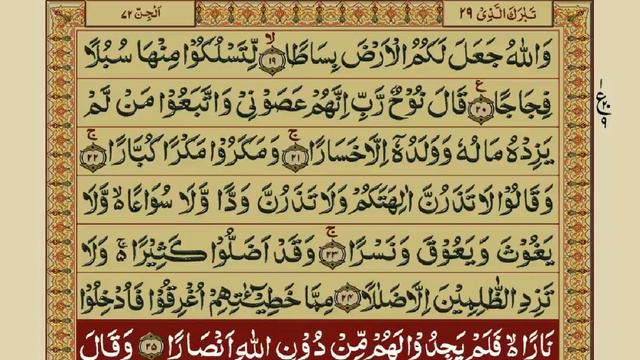 تَبٰرَكَ الَّذِیْ ٢٩
اَلْجِنّ ٧٢
وَاللّٰهُ جَعَلَ لَكُمُ الْاَرْضَ بِسَاطًا ۙ﴿١٩﴾ لِّتَسْلُكُوْا مِنْهَا سُبُلًا
فِجَاجًا ﴿٢٠﴾ ع قَالَ نُوْحٌ رَّبِّ اِنَّهُمْ عَصَوْنِیْ وَاتَّبَعُوْا مَنْ لَّمْ
یَزِدْهُ مَالُهٗ وَوَلَدُهٗۤ اِلَّا خَسَارًا ۚ﴿٢١﴾ وَمَكَرُوْا مَكْرًا كُبَّارًا ۚ﴿٢٢﴾
وَقَالُوْا لَا تَذَرُنَّ اٰلِهَتَكُمْ وَلَا تَذَرُنَّ وَدًّا وَّلَا سُوَاعًا ۙ۬ وَّلَا
یَغُوْثَ وَیَعُوْقَ وَنَسْرًا ۚ﴿٢٣﴾ وَقَدْ اَضَلُّوْا كَثِیْرًا ۚ۬ وَلَا
تَزِدِ الظّٰلِمِیْنَ اِلَّا ضَلٰلًا ﴿٢٤﴾ مِمَّا خَطِیْٓـٰٔتِهِمْ اُغْرِقُوْا فَاُدْخِلُوْا
نَارًا ۙ۬ فَلَمْ یَجِدُوْا لَهُمْ مِّنْ دُوْنِ اللّٰهِ اَنْصَارًا ﴿٢٥﴾ وَقَالَ